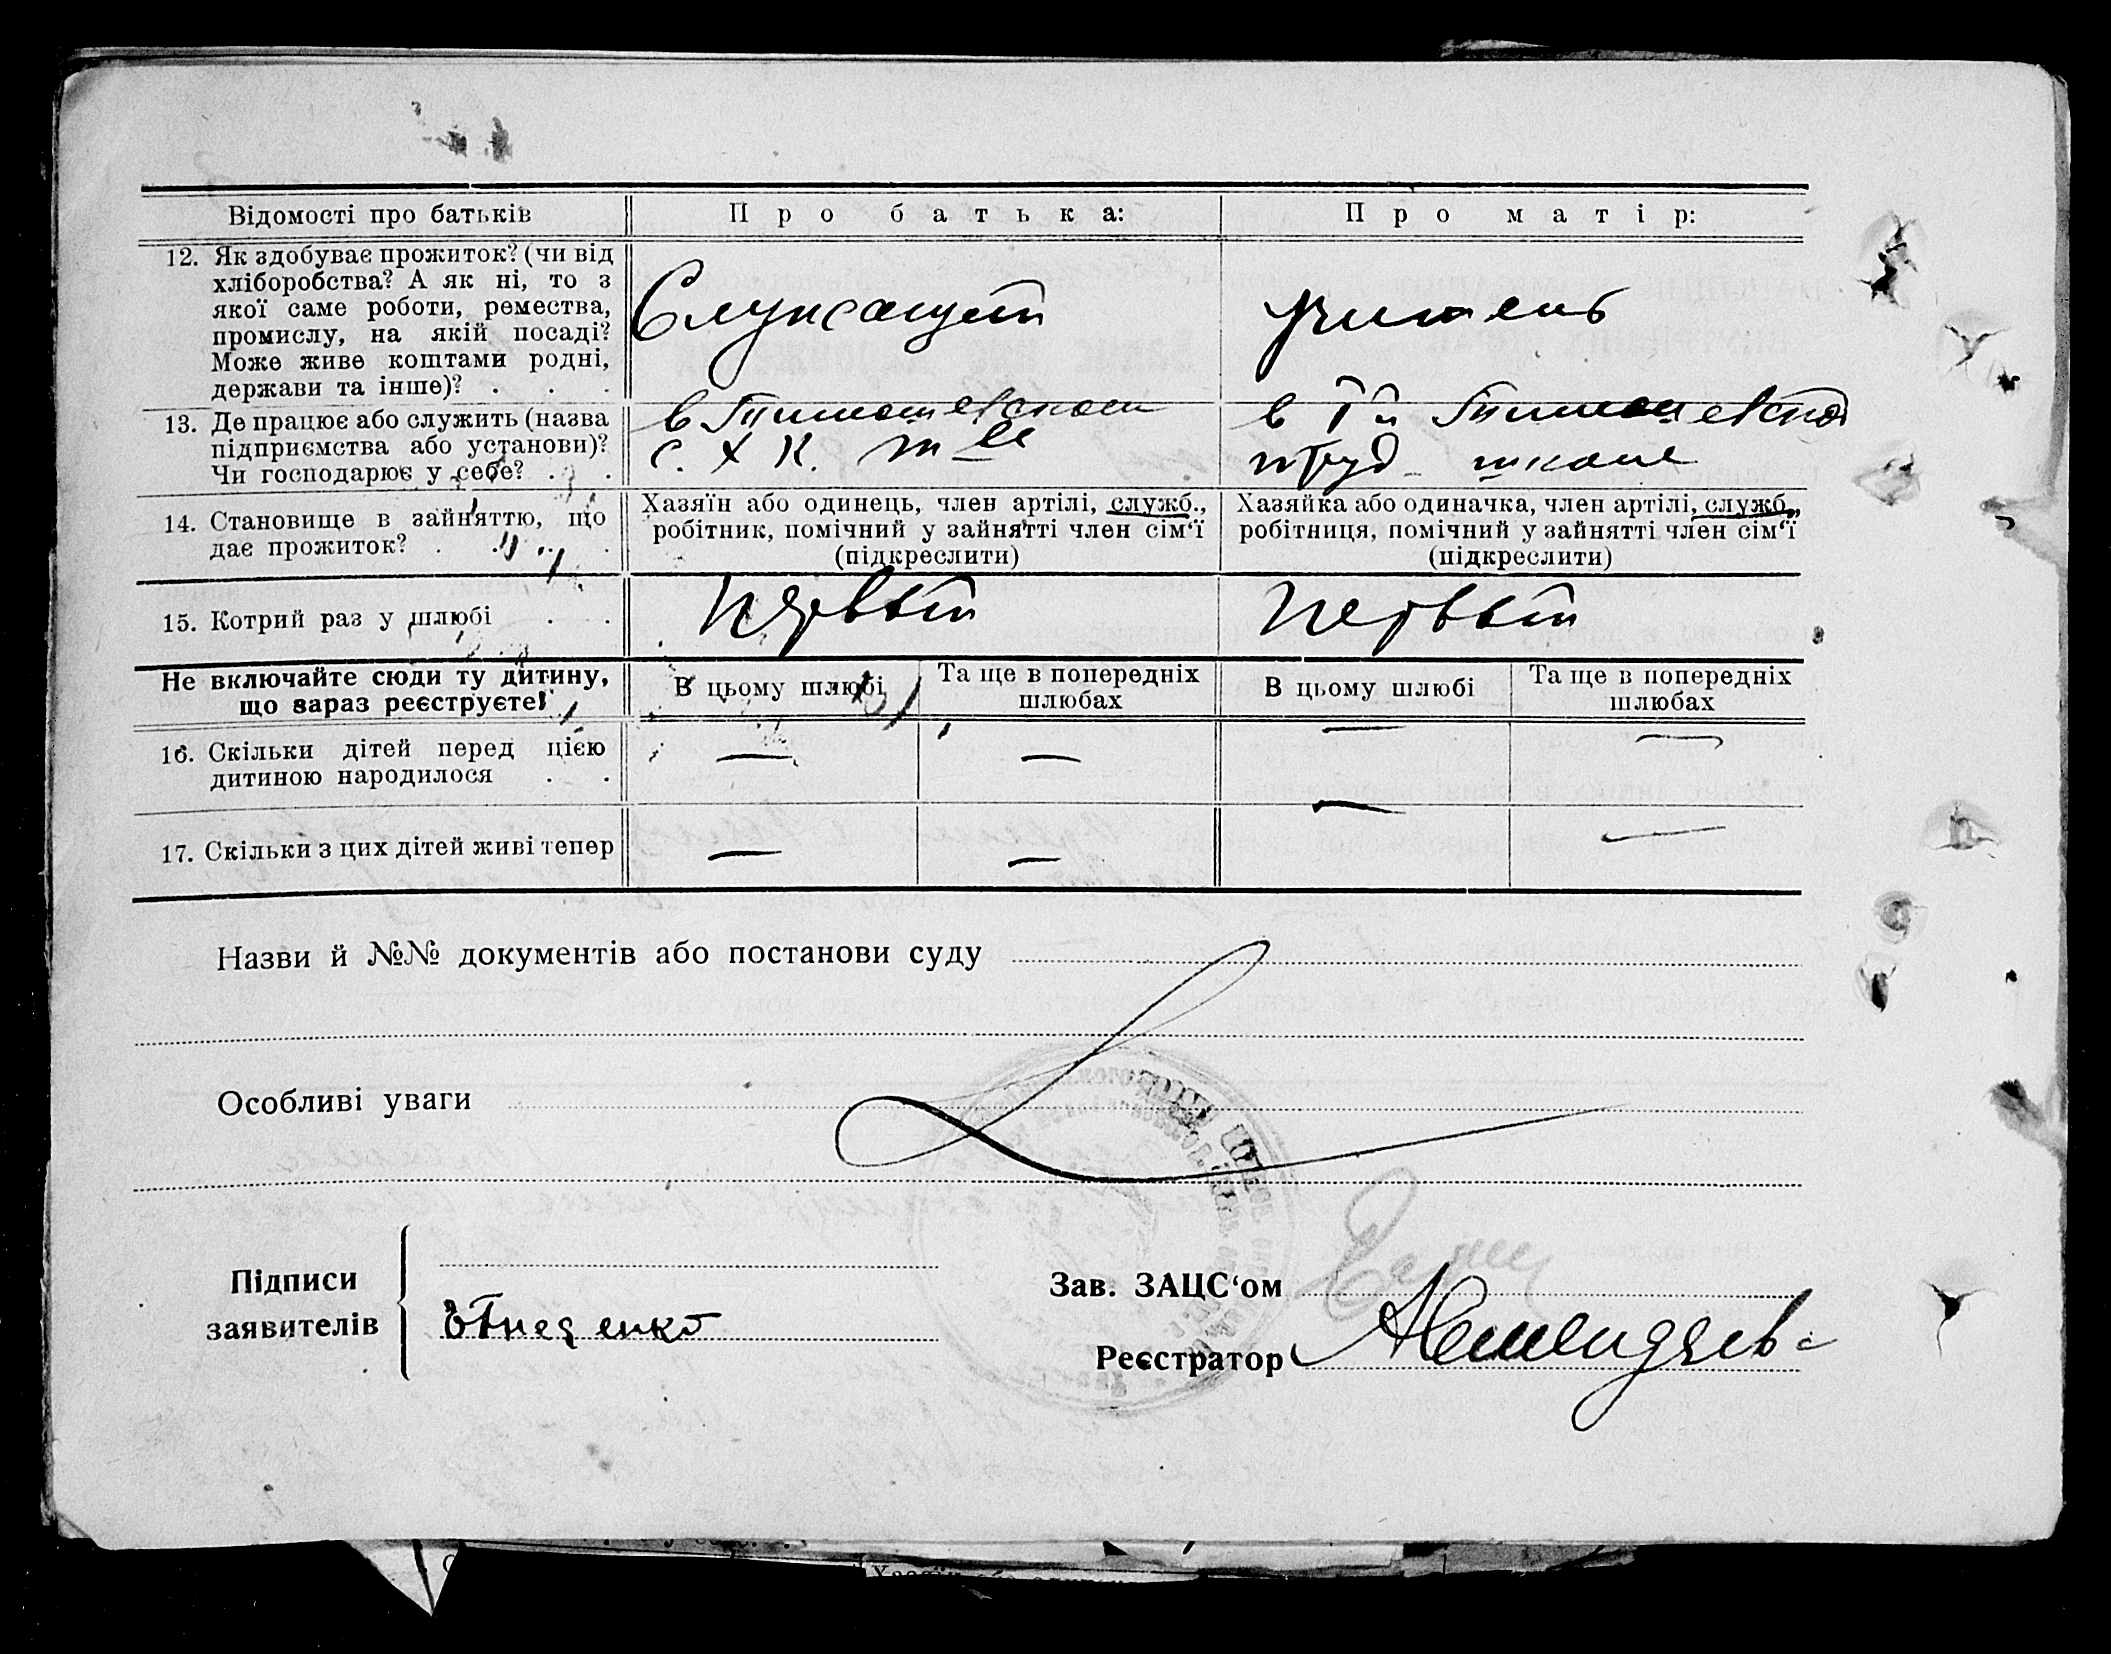 Відомості про батьків
Про батька:
Про матір:
12. Як здобуває прожиток? (чи від
хліборобства? А як ні, то з
якої саме роботи, ремества,
промислу, на якій посаді?
Може живе коштами родні,
держави та інше)? . . .
Служащий
учитель
13. Де працює або служить (назва
підприємства або установи)?
Чи господарює у себе? . . .
в
с. х к.
в 1й
труд школе
14. Становище в зайняттю, що
дає прожиток? . . . .
Хазяїн або одинець, член артілі, служб.,
робітник, помічний у зайнятті член сім'ї
(підкреслити)
Хазяйка або одиначка, член артілі, служб.,
робітниця, помічний у зайнятті член сім'ї
(підкреслити)
15. Котрий раз у шлюбі . .
первый
первый
Не включайте сюди ту дитину,
що зараз реєструєте!
В цьому шлюбі
Та ще в попередніх
шлюбах
В цьому шлюбі
Та ще в попередніх
шлюбах
16. Скільки дітей перед цією
дитиною народилося . .
— — — —
17. Скільки з цих дітей живі тепер
— — — —
Назви й №№ документів або постанови суду
Особливі уваги
Підписи
заявителів
Зав. ЗАЦС'ом
Реєстратор